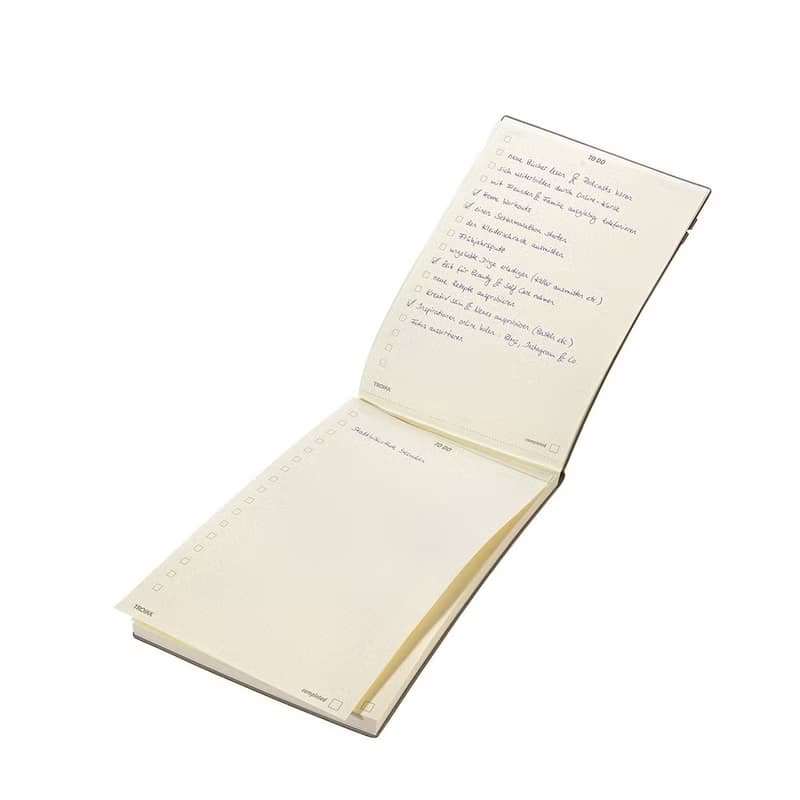 TO DO
neue Bücher lesen & Podcasts hören
sich weiterbilden durch Online-Kurse
mit Freunden & Familie ausgiebig telefonieren
Home Workouts
einen Serienmarathon starten
den Kleiderschrank ausmisten
Frühjahrsputz
ungeliebte Dinge erledigen (Keller ausmisten etc.)
Zeit für Beauty & Self Care nehmen
neue Rezepte ausprobieren
Kreativ sein & Neues ausprobieren (Basteln etc.)
Inspirationen online holen: Blogs, Instagram & Co.
Fotos aussortieren
TROIKA
completed
TO DO
TROIKA
completed